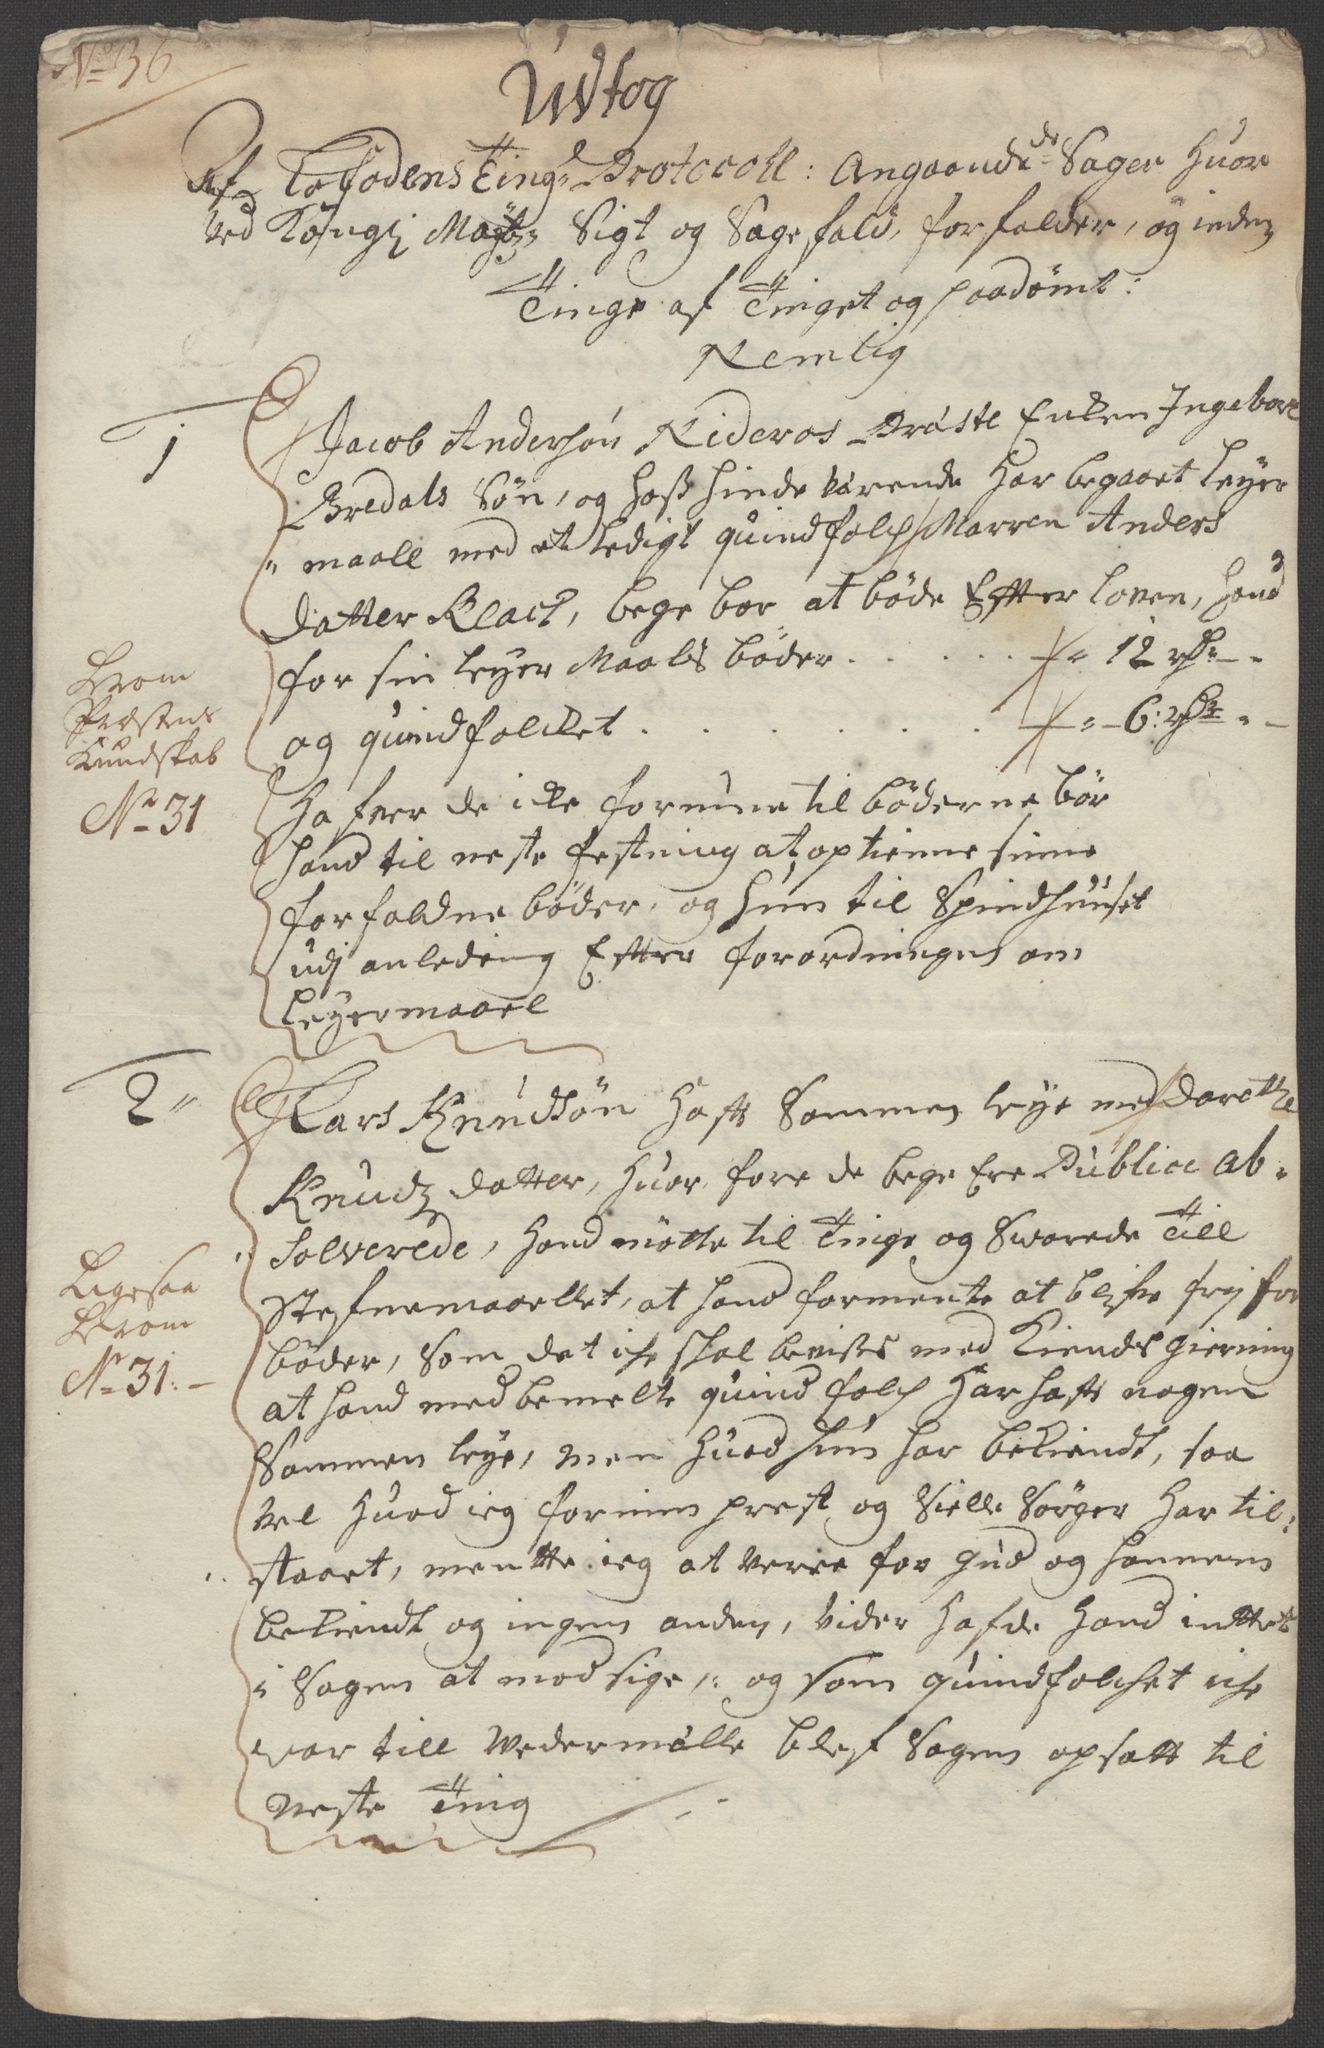 No 36
Udtog
Af Lofodens Tings Protocoll: Angaaende de Sager huor
ved Kongl Maytz Sigt og Sagefald, forfalder, og inden
Tinge af Tinget og paadömt:
Nemlig
1
Jacob Andersön Nideros Bröste Enken Ingebor
Bredals Sön, og hoss hinde værende har begaaet leyer
maall med et ledigt quindfolch Marren Anders
datter Klack, bege bör at böde Effter loven, hand
for sin leyer Maals böder . . . . . 12 rdr
og quindfolcket . . . . . . 6: rdr
Herom
Præstens
Kundskab
No 31
Hafuer de icke formue til böderne bör
hand til neste festning at optienne sinne
forfaldne böder, og hun til Spindhuuset
udj anleding Effter forordningen om
leyermaael
2
Lars Knudsön hafft Sammen leye med Dorethe
Knudz datter, huor fore de bege Ere Publice ab-
solverede, hand mötte til Tinge og Swarede Till
Stefnemaallet, at hand formente at blifve frj for
böder, som det iche skal bevises med Kiendes gierning
at hand med bemelte quindfolch har hafft nogen
Sammen leye, men huad hun har bekiendt, saa
vel huad ieg for min prest og Siælle Sörger har til-
staaet, mentte ieg at være for gud og hannem
bekiendt og ingen anden, vider hafde hand inttet
i Sagen at modsige, og som quindfolchet iche
var till vedermælle blef Sagen opsatt til
neste Ting
Ligesaa
Herom
No 31.